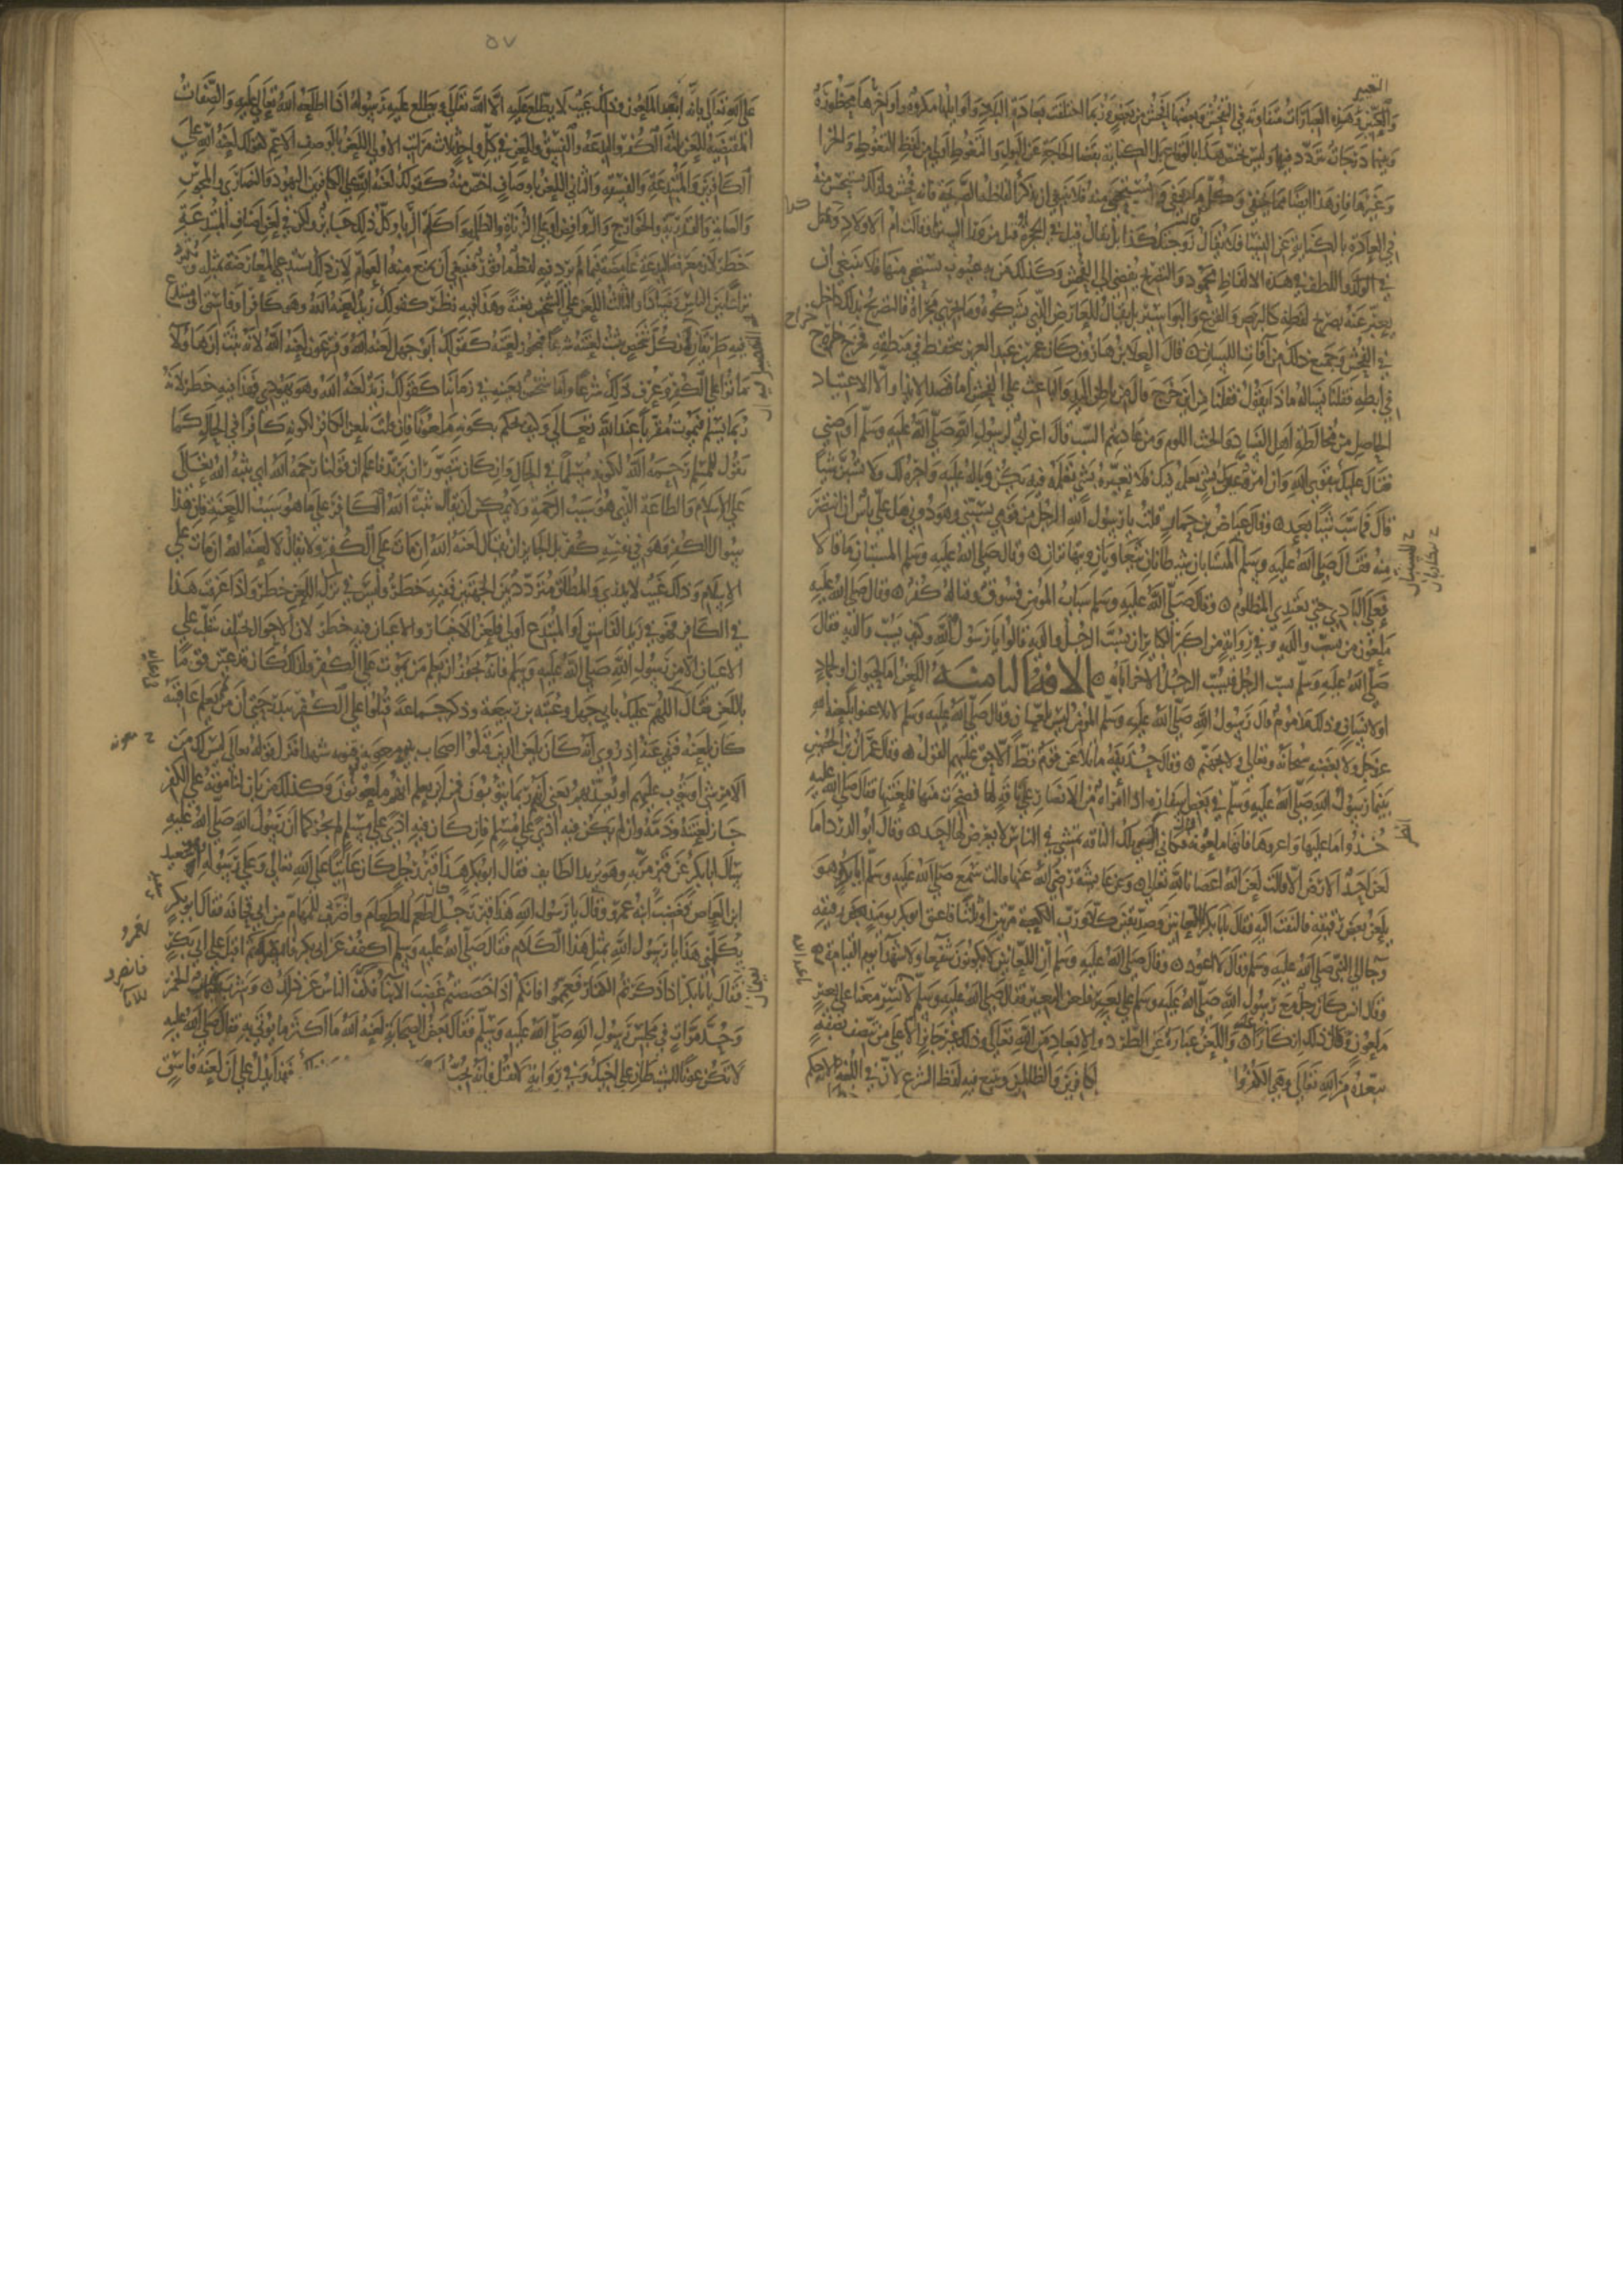 والكثير وهذه العبارات متفاوتة في الفحش وبعضها افحش من بعض وربما اختلفت بعادة البلاد واوائلها مكروهة واواخرها محظورة
وبينهما درجات يتردد فيها وليس يختص هذا بالوقاع بل الكناية بقضاء الحاجة عن البول والتغوط اولى من لفظ التغوط والخرا
وغيرهما فان هذا ايضا مما يخفى وكل ما يخفى يستحيى منه فلا ينبغي ان يذكر الفاظه الصريحة فانه فحش وكذلك يستحسن
في العادة الكناية عن النساء فلا يقال زوجتك كذا بل يقال قيل في الحجرة قيل من وراء الستر او قالت ام الاولاد
في الولد واللطف في هذه الالفاظ محمود والتصريح يفضي الى الفحش وكذلك من به عيوب يستحيي منها فلا ينبغي ان
يعبر عنه بصريح لفظه كالبرص والقرع والبواسير بل يقال العارض الذي يشكوه وما يجري مجراه فالتصريح بذلك داخل
في الفحش وجميع ذلك من آفات اللسان قال العلاء بن هارون كان عمر بن عبد العزيز يتحفظ في منطقه فخرج خراج
في ابطه فقلنا نسأله ماذا يقول فقلنا من اين خرج قال من باطن اليد والباعث على الفحش اما قصد الايذا والا الاعتياد
الحاصل من مخالطة اهل الفساد واللوم ومن عادتهم السب قال اعرابي لرسول الله صلى الله عليه وسلم اوصني
فقال عليك بتقوى الله وان امرؤ عيرك بشيء يعلمه فيك فلا تعيره بشيء تعلمه فيه يكن وباله عليه واجره لك ولا تسبن شيئا
قال فما سببت شيئا بعده وقال عياض بن حمار قلت يا رسول الله الرجل من قومي يسبني وهو دوني هل علي باس ان انتصر
منه فقال صلى الله عليه وسلم المتسابان شيطانان يتعاويان ويتهاتران وقال صلى الله عليه وسلم المستبان ما قالا
فعلى البادي حتى يعتدي المظلوم وقال صلى الله عليه وسلم سباب المؤمن فسوق وقتاله كفر وقال صلى الله عليه
ملعون من سب والديه وفي رواية من اكبر الكباير ان يسب الرجل والديه قالوا يا رسول الله وكيف يسب والديه فقال
صلى الله عليه وسلم يسب الرجل فيسب الرجل الاخر اباه الافة الثامنة اللعن اما لحيوان او لجماد
او لانسان وذلك مذموم قال رسول الله صلى الله عليه وسلم المؤمن ليس بلعان وقال صلى الله عليه وسلم لا تلاعنوا بلعنة الله
عز وجل ولا بغضبه سبحانه وتعالى ولا بجهنم وقال حذيفة ما تلاعن قوم قط الا حق عليهم القول وقال عمران بن الحصين
بينما رسول الله صلى الله عليه وسلم في بعض اسفاره اذا امراة من الانصار على ناقة لها فضجرت منها فلعنتها فقال صلى الله عليه
خذوا ما عليها واعروها فانها ملعونة فكاني ارى تلك الناقة تمشي في الناس لا يعرض لها احد وقال ابو الدرداء ما
لعن احد الارض الا قالت لعن الله اعصانا لله تعالى وعن عايشة رضي الله عنها قالت سمع صلى الله عليه وسلم ابا بكر وهو
يلعن بعض رقيقه فالتفت اليه فقال يا ابا بكر العانين وصديقين كلا ورب الكعبة مرتين او ثلثا فاعتق ابو بكر يومئذ بعض رقيقه
وجا الى النبي صلى الله عليه وسلم وقال لا اعود وقال صلى الله عليه وسلم ان اللعانين لا يكونون شفعا ولا شهدا يوم القيامة
وقال انس كان رجل مع رسول الله صلى الله عليه وسلم على بعير فلعن البعير فقال صلى الله عليه وسلم لا تسر معنا على بعير
ملعون قال ذلك انكارا عليه واللعن عبارة عن الطرد والابعاد من الله تعالى وذلك غير جايز الا على من يتصف بصفة
تبعده من الله تعالى وهي الكفر وا لكافرين والظالمين ويتبع فيه لفظ الشرع لان في اللعنة
٥٧
على الله تعالى بانه ابعد الملعون وذلك غيب لا يطلع عليه الا الله تعالى ويطلع عليه رسوله اذا اطلعه الله تعالى عليه والصفات
المقتضية للعن ثلثة الكفر والبدعة والفسق وللعن في كل واحد ثلاث مراتب الاولى اللعن بالوصف الاعم كقولك لعنة الله على
الكافرين والمبتدعة والفسقة والثاني اللعن باوصاف اخص منه كقولك لعنة الله على الكافرين اليهود والنصارى والمجوس
والصابية والقدرية والخوارج والروافض او على الزناة والظلمة واكلة الربا وكل ذلك جايز ولكن في لعن اصناف المبتدعة
خطر لان معرفة البدعة غامضة فما لم يرد فيه لفظ ماثور فينبغي ان يمنع منه العوام لان ذلك يستدعي المعارضة بمثله ويثير
نزاعا بين الناس وفسادا والثالث اللعن على الشخص بعينه وهذا فيه نظر كقولك زيد لعنه الله وهو كافر او فاسق او مبتدع
فيه طريقان كل شخص ثبت لعنته شرعا فيجوز لعنته كقولك ابو جهل لعنه الله وفرعون لعنه الله لانه ثبت ان هاولا
ماتوا على الكفر وعرف ذلك شرعا واما شخص بعينه في زماننا كقولك زيد لعنه الله وهو يهودي فهذا فيه خطر لانه
ربما يسلم فيموت مقربا عند الله تعالى وكيف يحكم بكونه ملعونا فان قلت يلعن الكافر لكونه كافرا في الحال كما
يقول للمسلم رحمه الله لكونه مسلما في الحال وان كان يتصور ان يرتد فاعلم ان قولنا رحمه الله اي ثبته الله تعالى
على الاسلام والطاعة الذي هو سبب الرحمة ولا يمكن ان يقال ثبت الله الكافر على ما هو سبب اللعنة فان هذا
سوال الكفر وهو في نفسه كفر بل الجايز ان يقال لعنه الله ان مات على الكفر ولا يقال لا لعنه الله ان مات على
الاسلام وذلك غيب لا يدرى والمطلق متردد بين الجهتين ففيه خطر وليس في ترك اللعن خطر واذا عرفت هذا
في الكافر فهو في زيد الفاسق او المبتدع اولى فلعن الاخيار والاعيان فيه خطر لان الاحوال تختلف تتقلب على
الاعيان الا من رسول الله صلى الله عليه وسلم فانه يجوز ان يعلم من يموت على الكفر ولذلك كان قد عين قوما
باللعن فقال اللهم عليك بابي جهل وعتبة بن ربيعة وذكر جماعة قتلوا على الكفر ببدر حتى ان من لم يعلم عاقبته
كان يلعنه فنهي عنه اذ روي انه كان يلعن الذين قتلوا اصحاب بير معونة في قنوته شهرا فنزل قوله تعالى ليس لك من
الامر شي او يتوب عليهم او يعذبهم يعني انهم ربما يتوبون فمن اين يعلم انهم ملعونون وكذلك من بان لنا موته على الكفر
جاز لعنته وذمه وان لم يكن فيه اذى على مسلم فان كان فيه اذى على مسلم لم يجز كما ان رسول الله صلى الله عليه
سال ابا بكر عن قبر مر به وهو يريد الطايف فقال ابو بكر هذا قبر رجل كان عاتيا على الله تعالى وعلى رسوله سعيد
ابن العاص فغضب ابنه عمرو وقال يا رسول الله هذا قبر رجل كان اطعم للطعام واضرب للهام من ابي قحافة فقال ابو بكر
يكلمني هذا يا رسول الله بمثل هذا الكلام فقال صلى الله عليه وسلم اكفف عن ابي بكر ثم اقبل على ابي بكر
فقال يا ابا بكر اذا ذكرتم الكفار فعمموا فانكم اذا خصصتم غضب الابنا فكف الناس عن ذلك وشرب نعيمان الخمر
وحد مرات في مجلس رسول الله صلى الله عليه وسلم فقال بعض الصحابة لعنه الله ما اكثر ما يؤتى به فقال صلى الله عليه
لا تكن عونا للشيطان على اخيك وفي رواية لا تقل فانه يحب فهذا يدل على ان لعنه فاسق